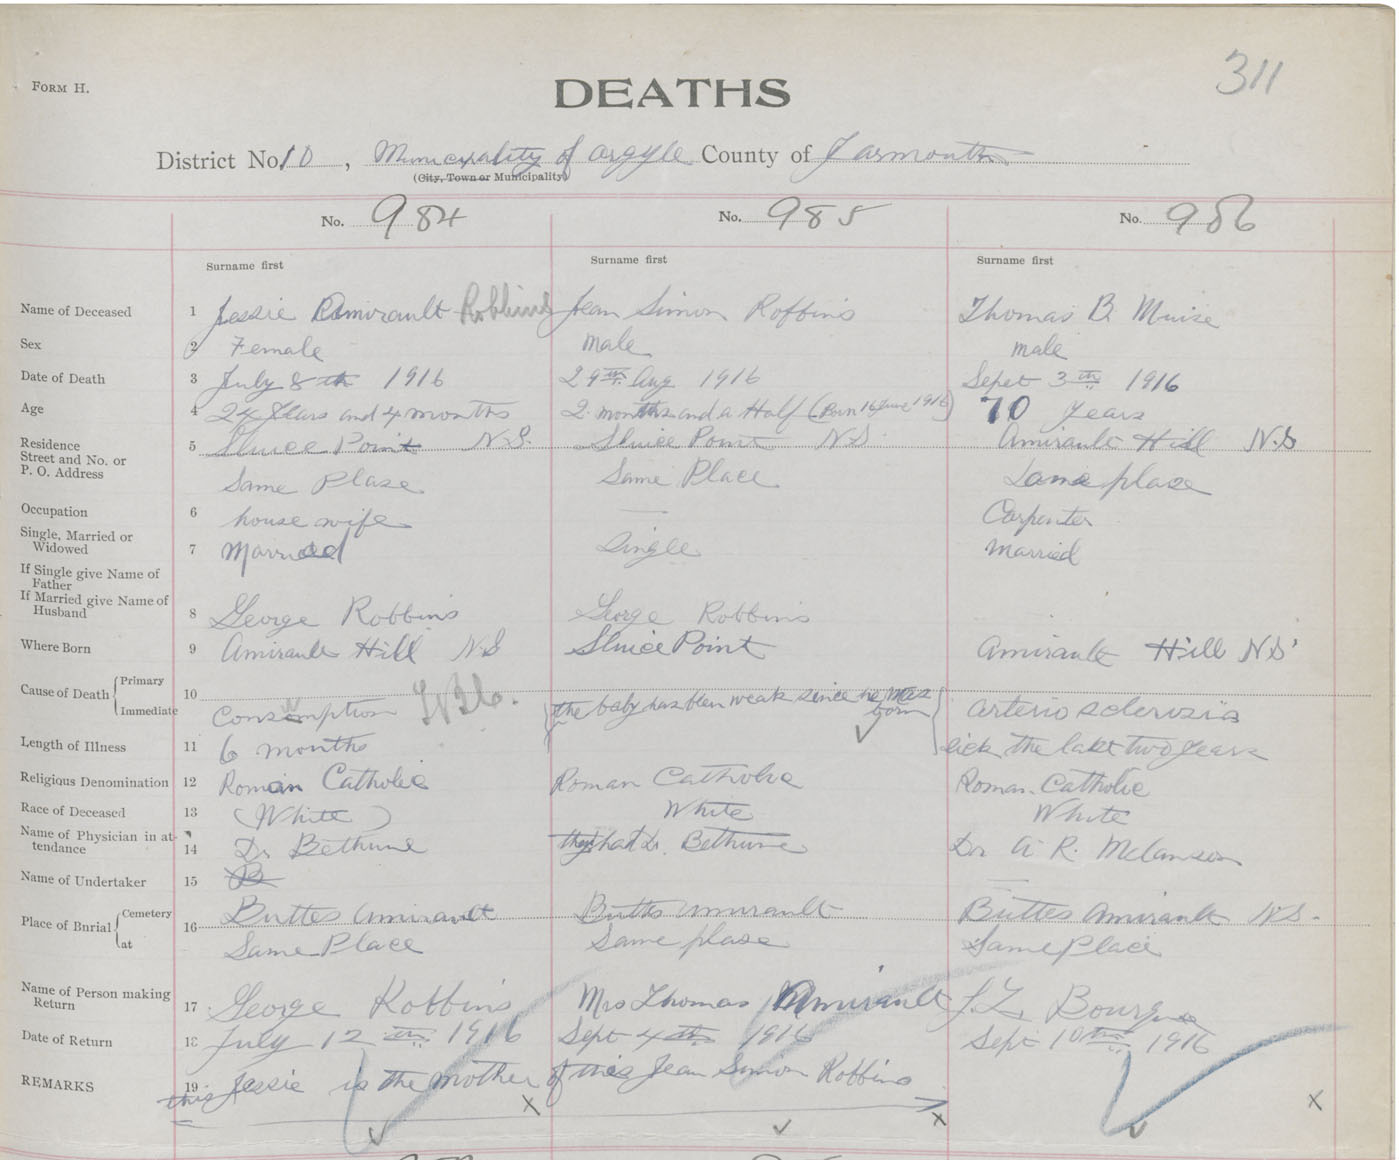 311
FORM H.
DEATHS
District No. 10, Municipality of Argyle County of Yarmouth
(City, Town or Municipality)
No. 984 No. 985 No. 986
Surname first Surname first Surname first
Name of Deceased 1 Jessie Amirault Robbins Jean Simon Robbins Thomas B. Muise
Sex 2 Female male male
Date of Death 3 July 8th 1916 29th Aug 1916 Sepet 3th 1916
Age 4 24 years and 4 months 2 months and a Half (Born 16 June 1916) 70 years
Residence 5 Sluice Point N.S. Sluice Point N.S. Amirault Hill N.S
Street and No. or
P. O. Address Same Plase Same Place Same plase
Occupation 6 house wife — Carpenter
Single, Married or
Widowed 7 Married Single Married
If Single give Name of
Father
If Married give Name of
Husband 8 George Robbins George Robbins
Where Born 9 Amirault Hill N.S Sluice Point Amirault Hill N.S
Cause of Death Primary 10
Immediate Consumption the baby has been weak since he was born arterio sclerosis
Length of Illness 11 6 months sick the last two years
Religious Denomination 12 Roman Catholic Roman Catholic Roman Catholic
Race of Deceased 13 (White) White White
Name of Physician in at-
tendance 14 Dr Bethune they had Dr. Bethune Dr A. R. Melanson
Name of Undertaker 15 B —
Place of Burial Cemetery 16 Buttes Amirault Buttes Amirault Buttes Amirault N.S.
at Same Place Same plase Same Place
Name of Person making
Return 17 George Robbins Mrs Thomas Amirault Bourque
Date of Return 18 July 12th 1916 Sept 4th 1916 Sept 10th 1916
REMARKS 19 this Jessie is the mother of this Jean Simon Robbins
x x x